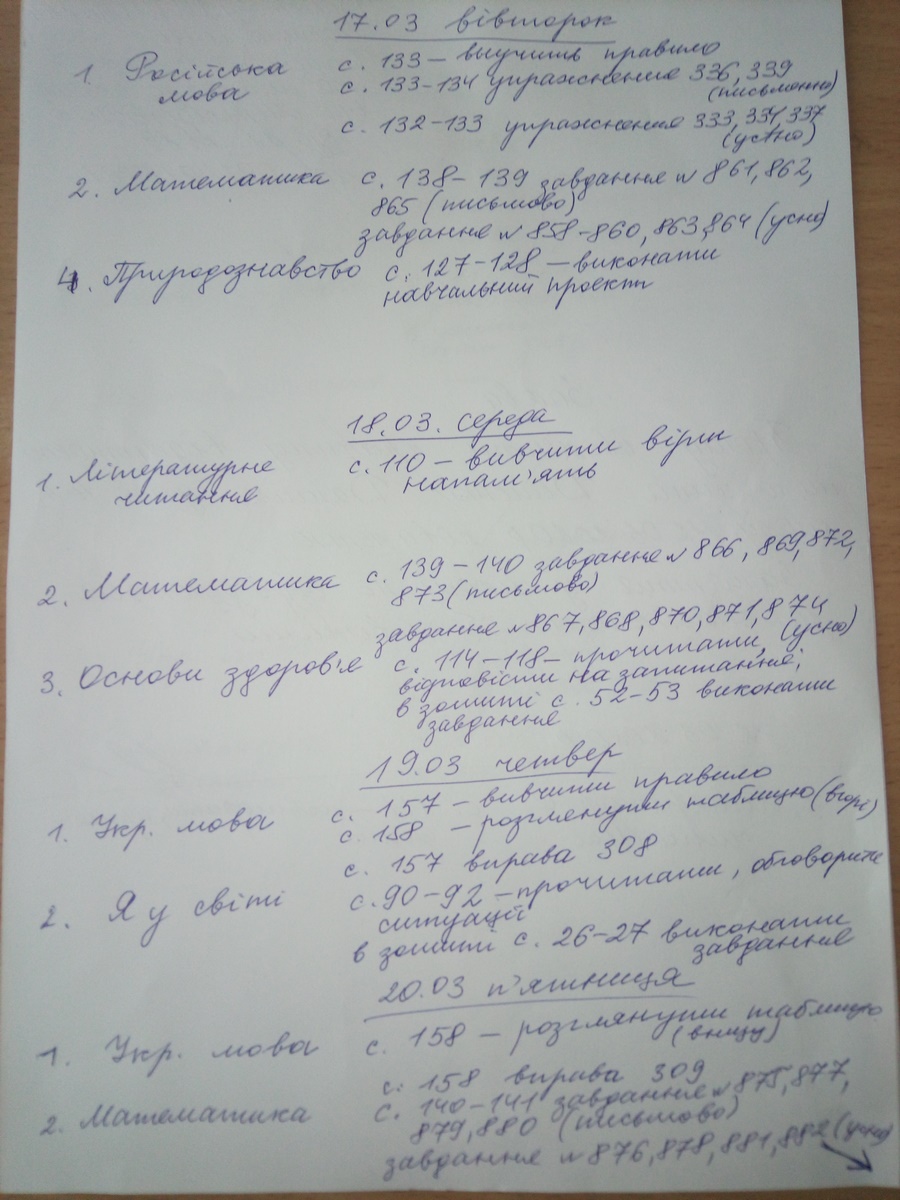 17.03 вівторок
1. Російська мова с. 133 – выучить правило
с. 133-134 упражнения 336, 339 (письменно)
с. 132-133 упражнения 333, 334, 337 (устно)
2. Математика с. 138-139 завдання № 861, 862,
865 (письмово)
завдання № 858-860, 863, 864 (усно)
4. Природознавство с. 127-128 – виконати
навчальний проект
18.03. середа
1. Літературне читання с. 110 – вивчити вірш
напам'ять
2. Математика с. 139-140 завдання № 866, 869, 872,
873 (письмово)
завдання № 867, 868, 870, 871, 874 (усно)
3. Основи здоров'я с. 114-118 – прочитати,
відповісти на запитання;
в зошиті с. 52-53 виконати
завдання
19.03 четвер
1. Укр. мова с. 157 – вивчити правило
с. 158 – розглянути таблицю (вгорі)
с. 157 вправа 308
2. Я у світі с. 90-92 – прочитати, обговорити
ситуації
в зошиті с. 26-27 виконати
завдання
20.03 п'ятниця
1. Укр. мова с. 158 – розглянути таблицю
(внизу)
с. 158 вправа 309
2. Математика с. 140-141 завдання № 875, 877,
879, 880 (письмово)
завдання № 876, 878, 881, 882 (усно)